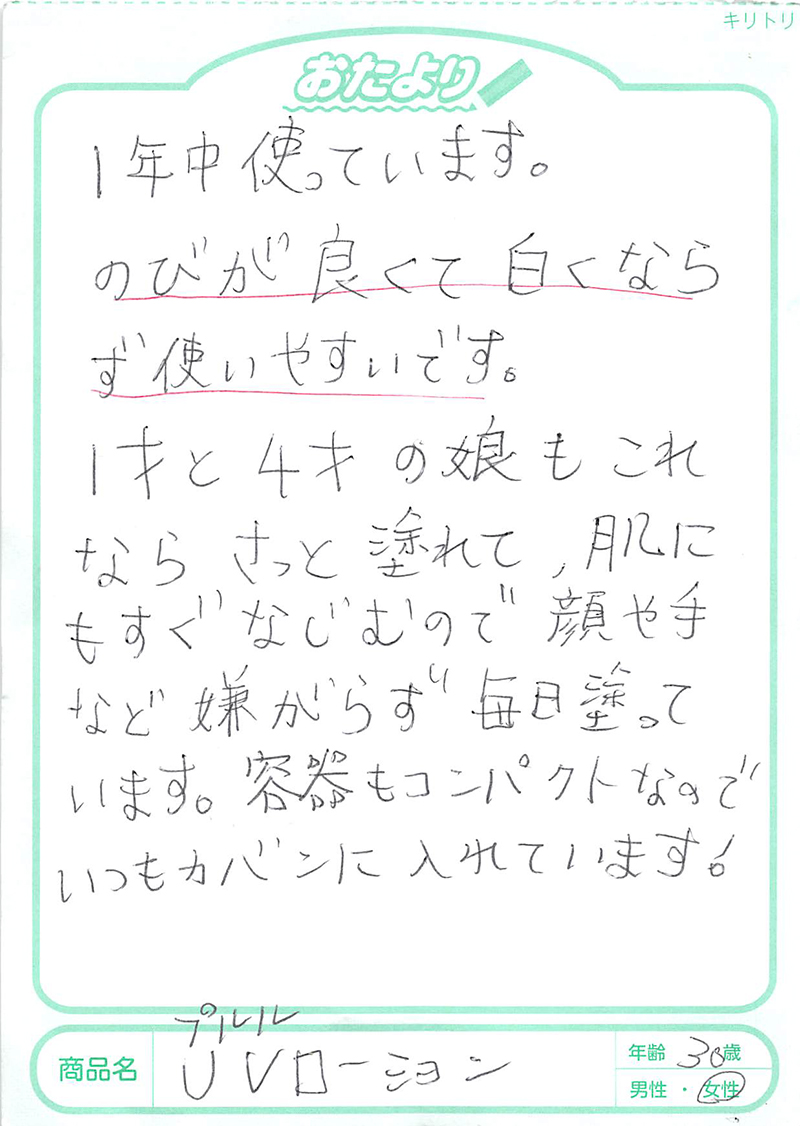 キリトリ
おたより
1年中使っています。
のびが良くて白くなら
ず使いやすいです。
1才と4才の娘もこれ
ならさっと塗れて、肌に
もすぐなじむので顔や手
など嫌がらず毎日塗って
います。容器もコンパクトなので
いつもカバンに入れています!
プルリル
商品名 UVローション
年齢 30歳
男性・女性